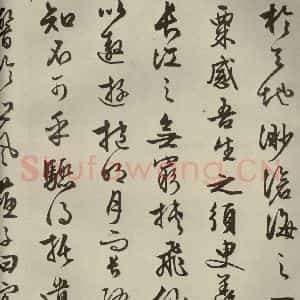 於天地渺滄海之一
粟感吾生之須臾羨
長江之無窮挾飛仙
以遨遊抱明月而長終
知不可乎驟得托遺
響於悲風蘇子曰客
Shufawang.CN